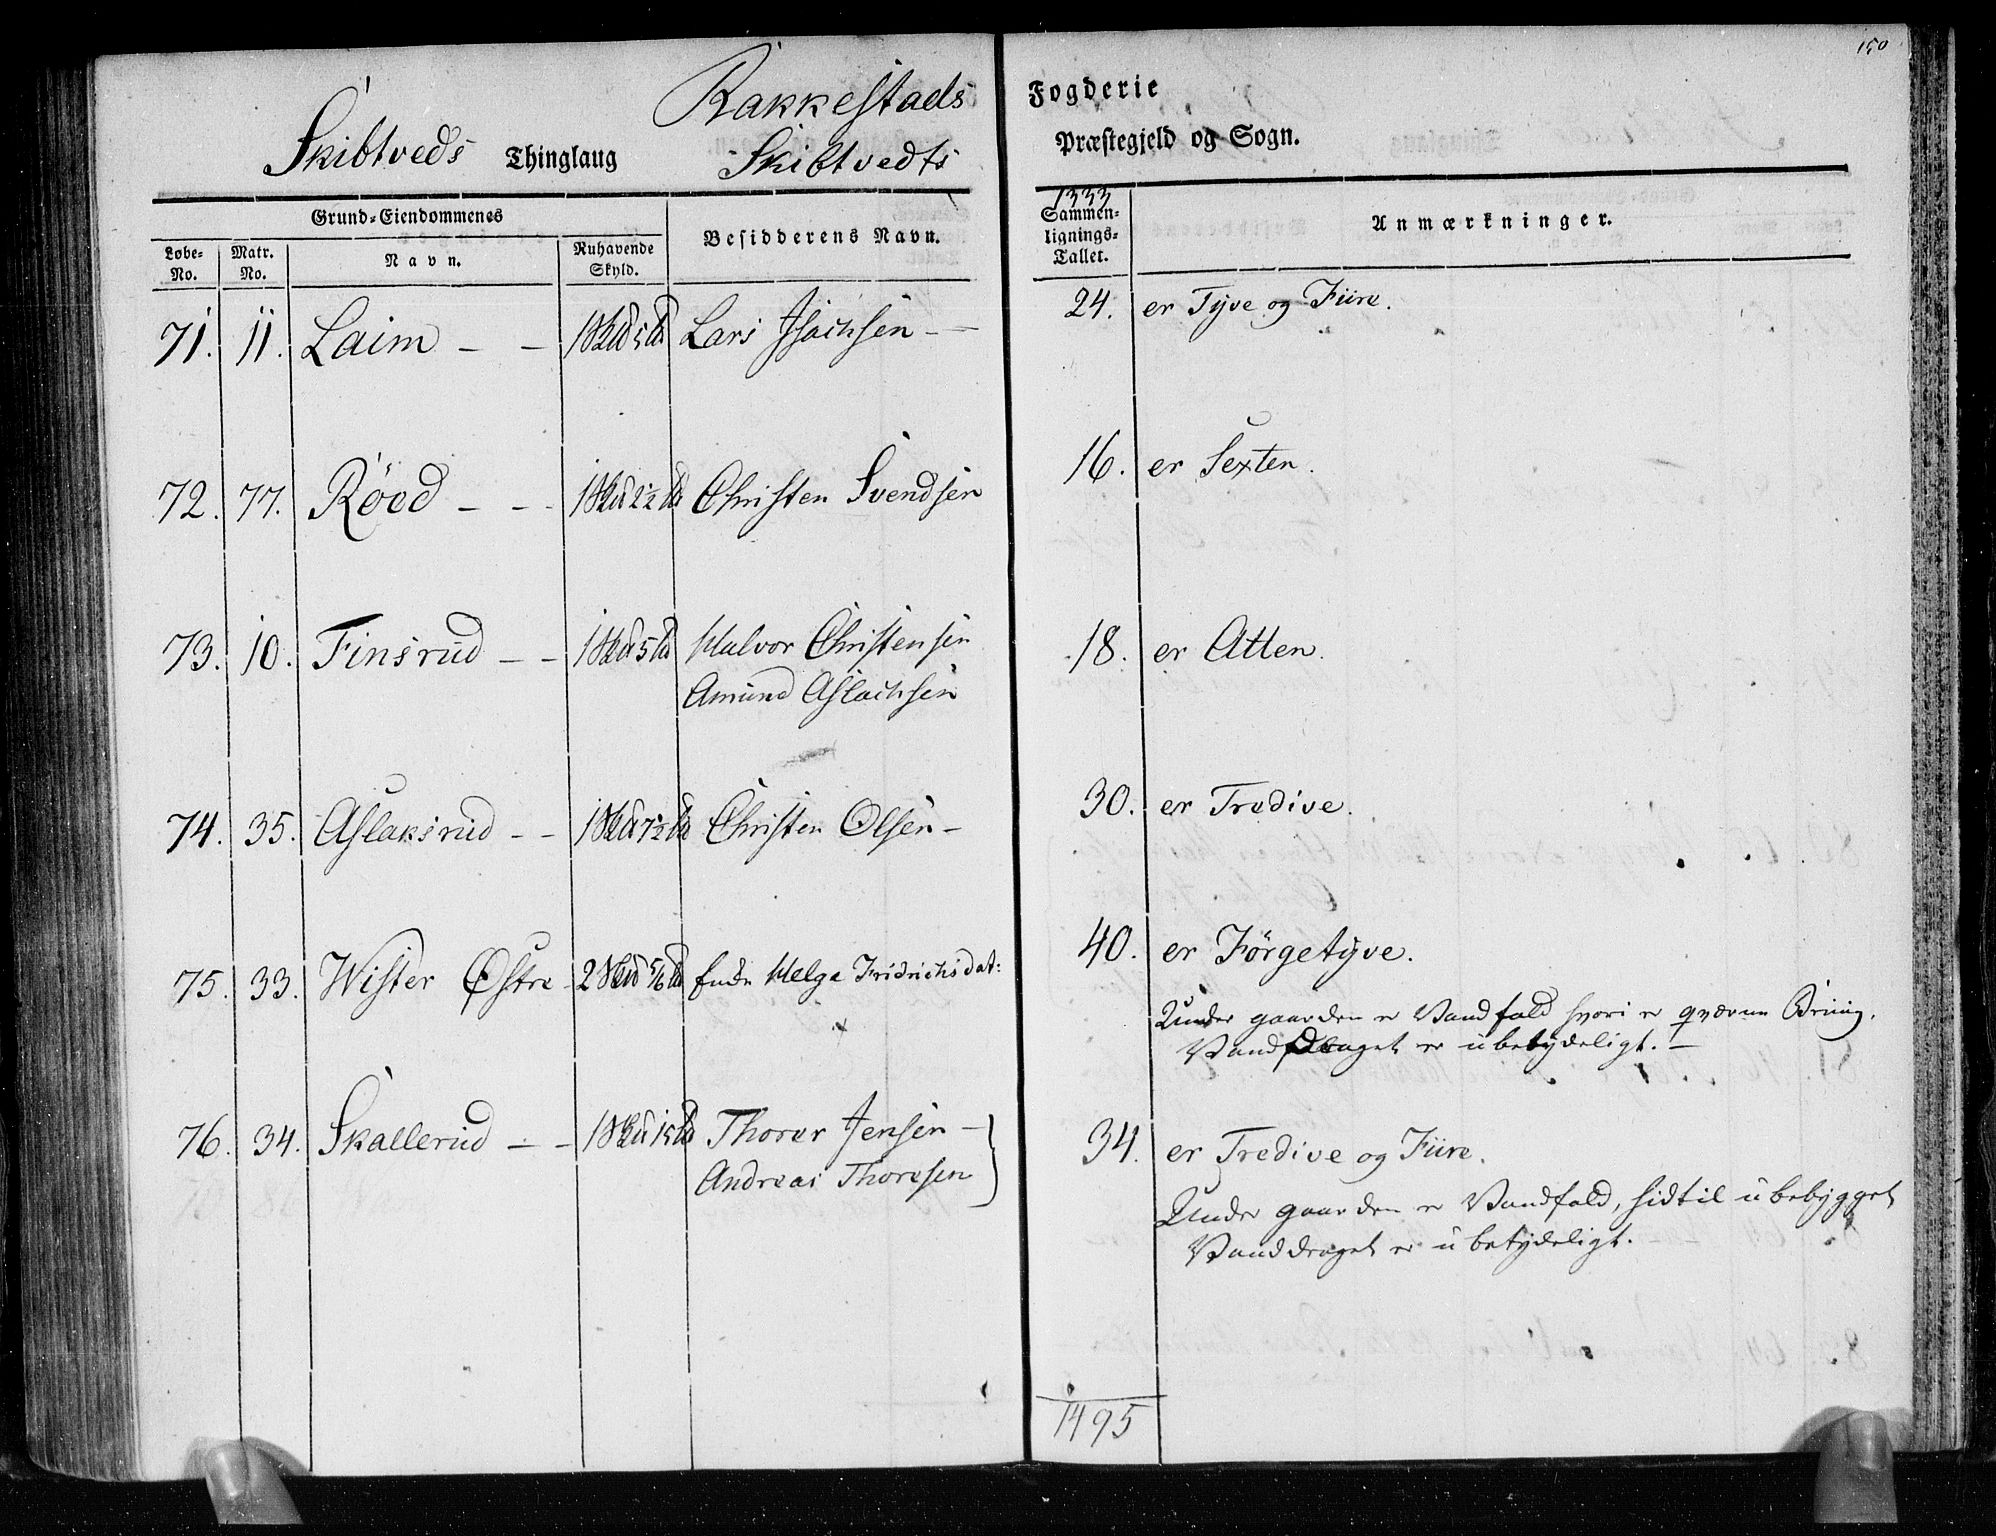 150
Rakkestads Fogderie
Skibtveds Thinglaug Skibtvedts Præstegjeld og Sogn.
1333
Grund-Eiendommenes
Løbe-No. Matr. No. Navn. Ruhavende Skyld. Besidderens Navn. Sammen-lignings-Tallet. Anmærkninger.
71. 11. Laim - - 1 Skd 5 Ld Lars Isachsen - - 24. er Tyve og Fiire.
72. 77. Røed - - - 1 Skd 2½ Ld Christen Svendsen 16. er Sexten.
73. 10. Finsrud - - 1 Skd 5 Ld Halvor Christensen 18. er Atten.
Amund Aslachsen
74. 35. Aslaksrud - - 1 Skd 7½ Ld Christen Olsen - 30. er Tredive.
75. 33. Wister Østre - 2 Skd 5/6 Ld Enke Helga Fridrichsdat: 40. er Førgetyve.
Under gaarden er Vandfald hvori er qværne Bruug.
Vanddraget er ubetydeligt. -
76. 34. Skallerud - - 1 Skd 15 Ld Thorer Jensen - 34. er Tredive og Fiire.
Andreas Thoresen
Under gaarden er Vandfald, hidtil ubebygget
Vanddraget er ubetydeligt.
1495